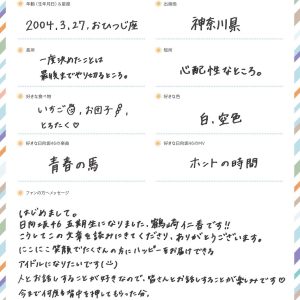 年齢(生年月日)&星座
出身地
2004.3.27,おひつじ座
神奈川県
長所
短所
一度決めたことは
最後までやりきるところ。
心配性なところ。
好きな食べ物
好きな色
いちご、お団子、
とろたく♡
白、空色
好きな日向坂46の楽曲
好きな日向坂46のMV
青春の馬
ホントの時間
ファンの方へメッセージ
はじめまして。
日向坂46 五期生になりました、鶴崎仁香です!!
こうしてこの文章を読みにきてくださり、ありがとうございます。
にこにこ笑顔でたくさんの方にハッピーをお届けできる
アイドルになりたいです(^^)
人とお話しすることが好きなので、皆さんとお話しすることが楽しみです♡
今まで何度も背中を押してもらった分、